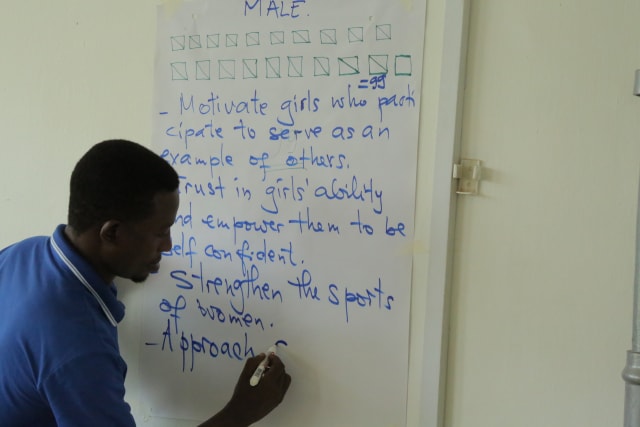 MALE.
=99
- Motivate girls who parti
cipate to serve as an
example of others.
Trust in girls' ability
and empower them to be
self confident.
Strengthen the sports
of women.
- Approach